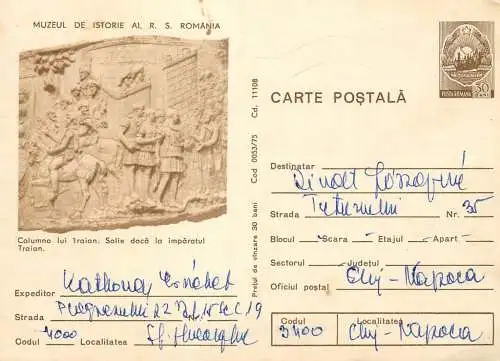 MUZEUL DE ISTORIE AL R. S. ROMÂNIA
Columna lui Traian. Solie dacă la împăratul
Traian.
Expeditor Kathonay
Strada Progresului 22
Codul 4000 Localitatea Sf. Gheorghe
Cod 0053/75 Cd. 11108
Prețul de vînzare 30 bani
POSTA ROMANA 30 BANI
CARTE POȘTALĂ
Destinatar
Strada Nr. 35
Blocul Scara Etajul Apart
Sectorul Județul
Oficiul poștal Cluj-Napoca
Codul Localitatea
3400 Cluj-Napoca